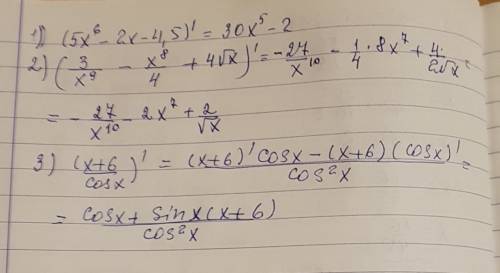 1) (5x⁶ - 2x - 4,5)' = 30x⁵ - 2
2) (3/x⁹ - x⁸/4 + 4√x)' = -27/x¹⁰ - 1/4 · 8x⁷ + 4/2√x =
= - 27/x¹⁰ - 2x⁷ + 2/√x
3) (x+6/cosx)' = (x+6)' cosx - (x+6)(cosx)'/cos²x =
= cosx + sinx(x+6)/cos²x